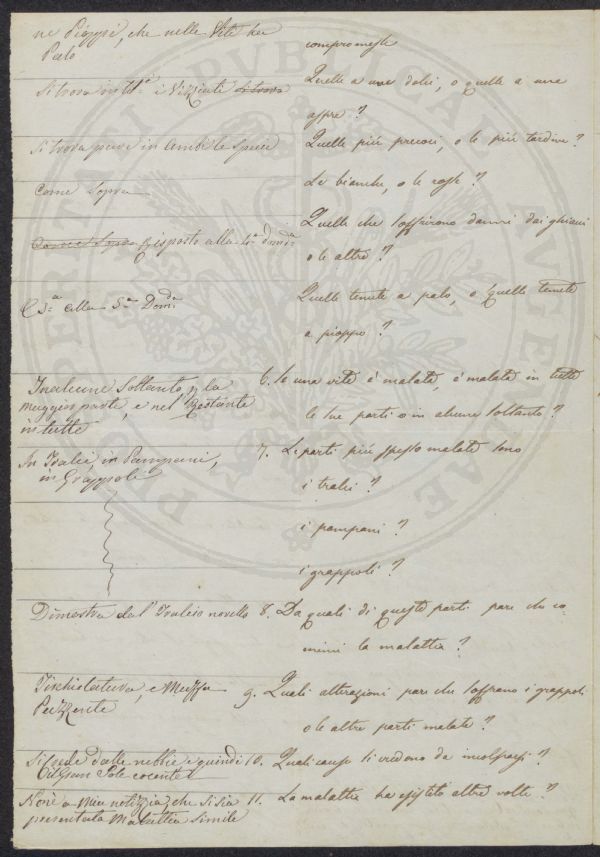 ne Pioppi, che nelle Vite ha
Palo
compromesse
Si trova in tt.ª i Vizziati si trova
Quelle a uve dolci, o quelle a uve
aspre?
Si trova pure in ambi le specie
Quelle più precoci, o le più tardive?
Come Sopra
Le bianche, o le rosse?
Come Sopra Risposto alla 4.ª dom.ª
Quelle che soffrirono danni dai ghiacci
o le altre?
C.s. alla 5.ª Dom.ª
Quelle tenute a palo, o quelle tenute
a pioppo?
In alcune soltanto p la
maggior parte, e nel Restante
in tutte
6. Se una vite è malata, è malata in tutte
le sue parti o in alcune soltanto?
In Tralci, in Pampani,
in Grappoli
7. Le parti più spesso malate sono
i tralci?
i pampani?
i grappoli?
Dimostra dal Tralcio novello
8. Da quali di queste parti pare che co
minci la malattia?
Tischiatura, e Muffa
Puzzente
9. Quali alterazioni pare che soffrano i grappoli
o le altre parti malate?
Si crede dalle nebbie e quindi
Sole cocente
10. Quali cause si credono da incolparsi?
Non è a mia notizia, che si sia
presentata Malattia simile
11. La malattia ha esistito altre volte?